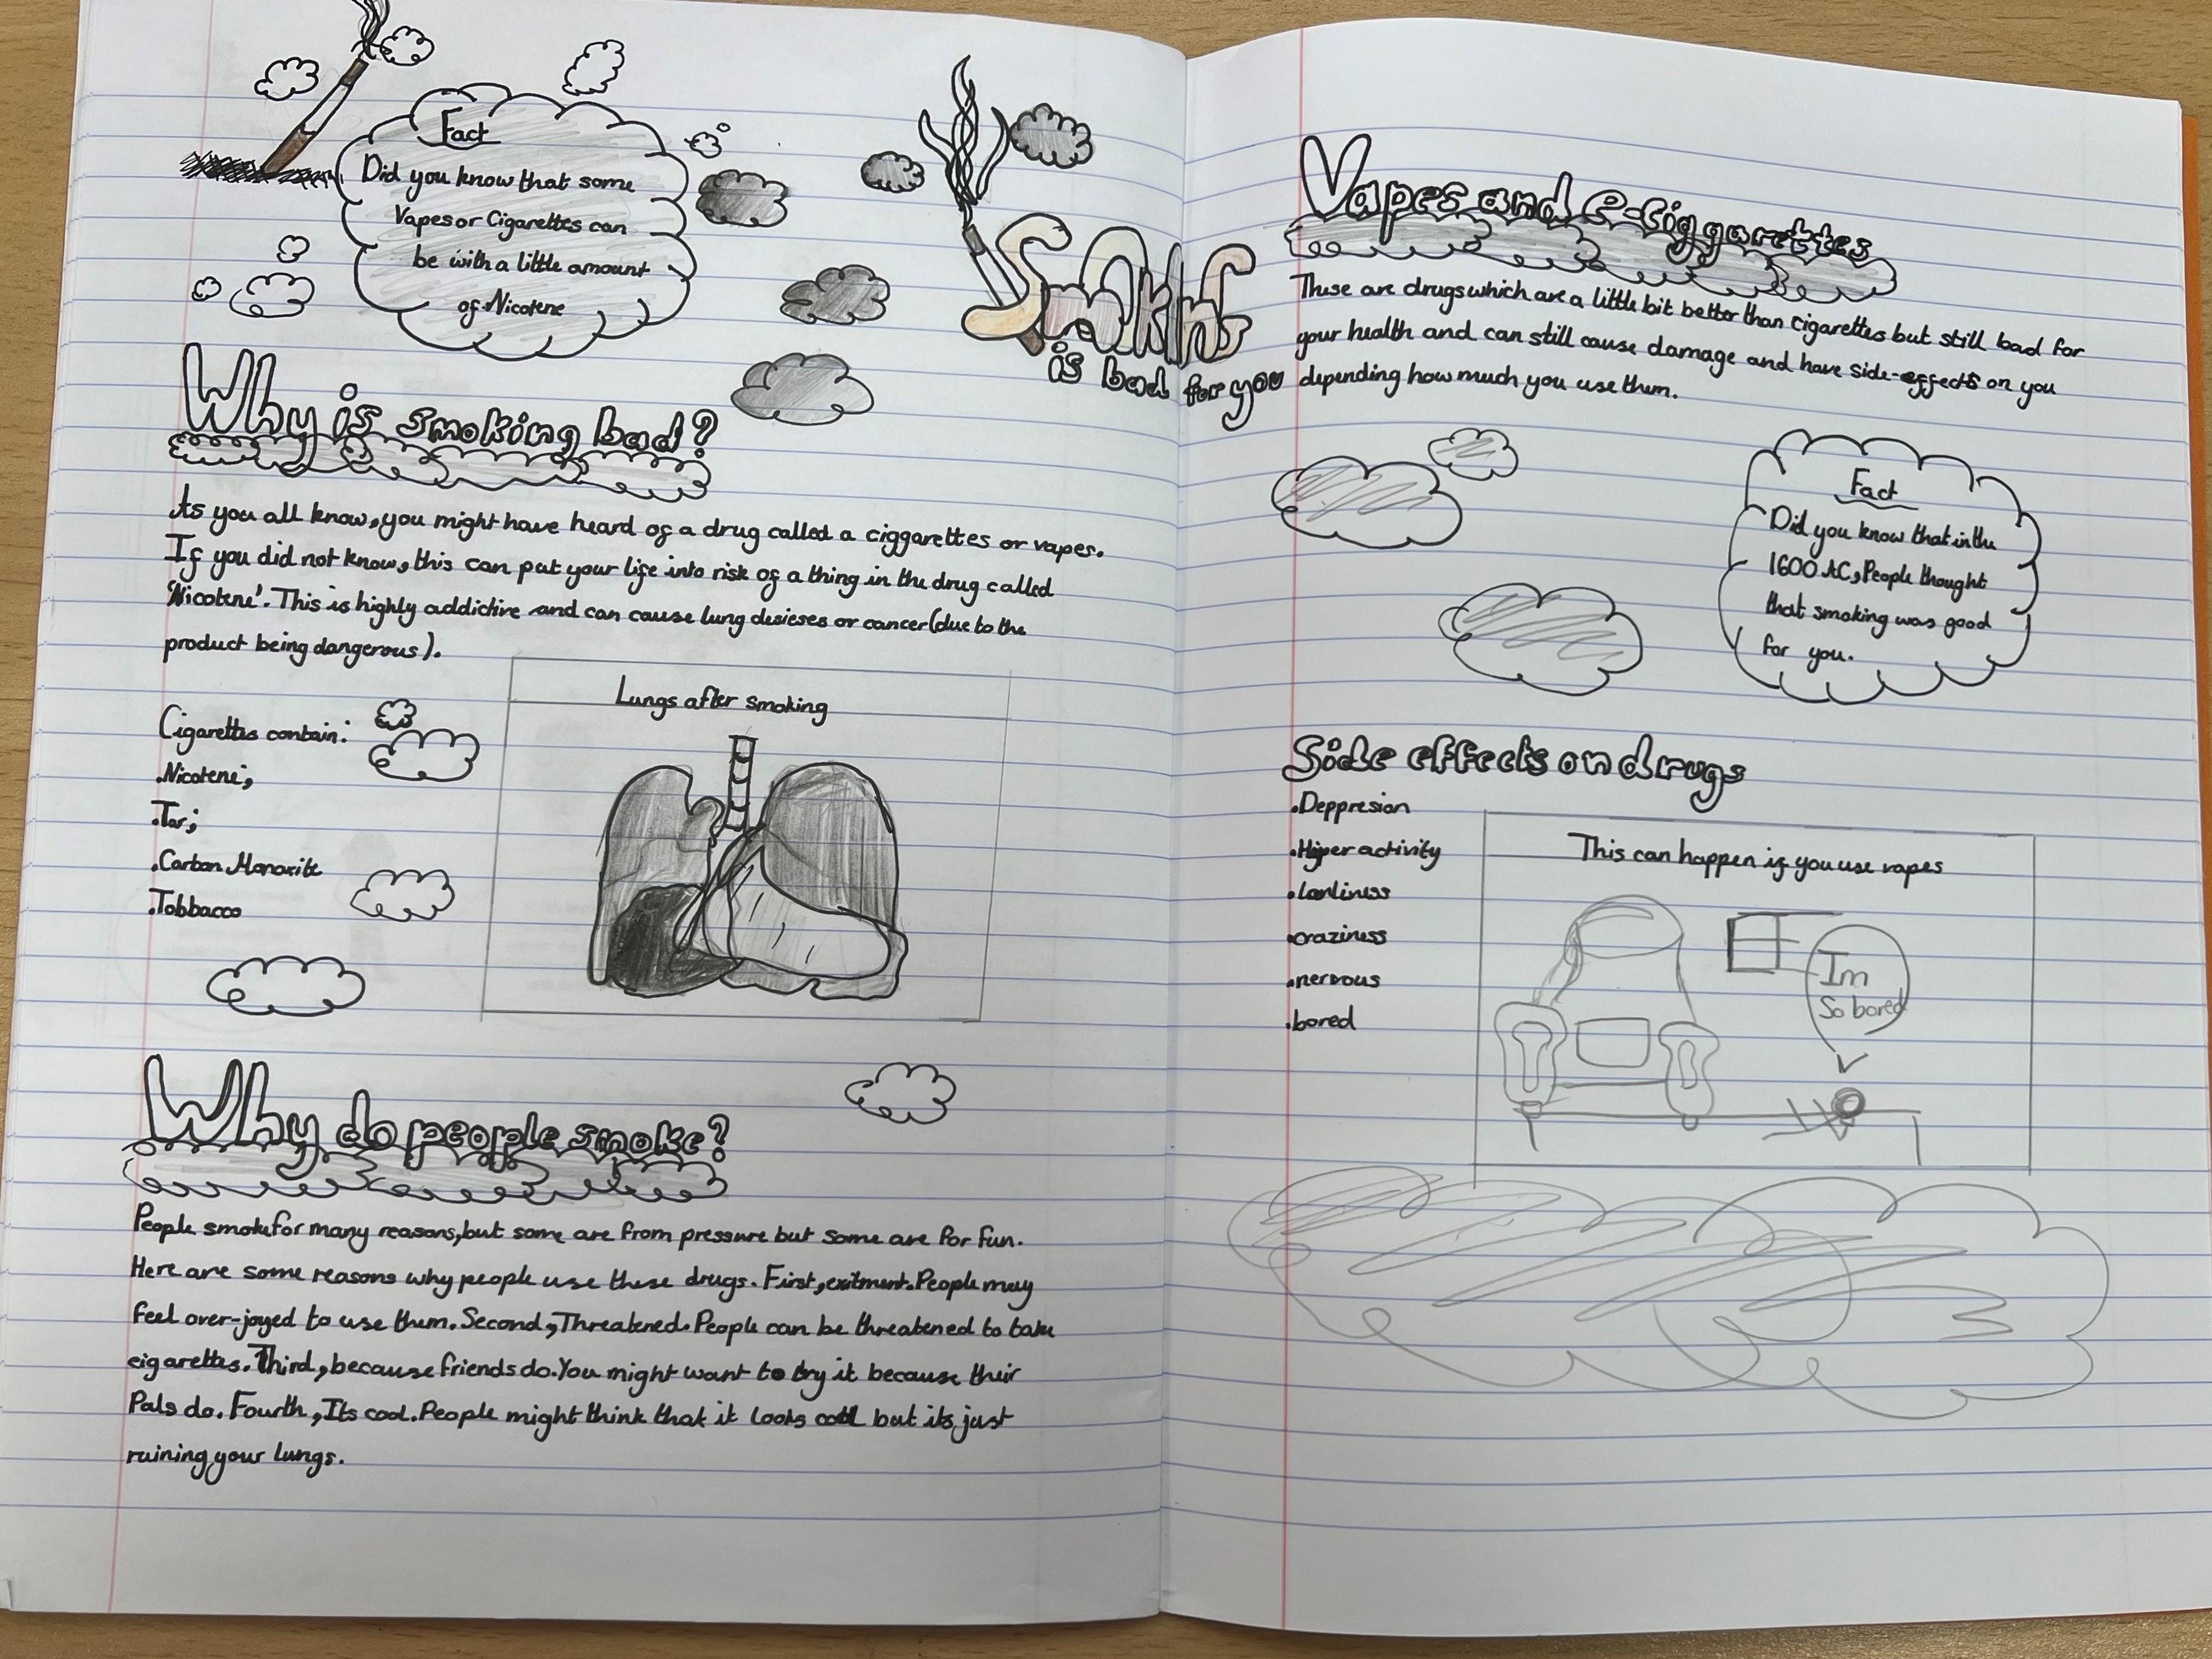 Fact
Did you know that some
Vapes or Cigarettes can
be with a little amount
of Nicotene
Smoking
is bad for you
Why is smoking bad?
As you all know, you might have heard of a drug called a ciggarettes or vapes.
If you did not know, this can put your life into risk of a thing in the drug called
'Nicotene'. This is highly addictive and can cause lung desieses or cancer (due to the
product being dangerous).
Cigarettes contain:
.Nicotene;
.Tar;
.Carbon Monoxite
.Tobbacco
Lungs after smoking
Why do people smoke?
People smoke for many reasons, but some are from pressure but some are for fun.
Here are some reasons why people use these drugs. First, exitment. People may
feel over-joyed to use them. Second, Threatened. People can be threatened to take
cigarettes. Third, because friends do. You might want to try it because their
Pals do. Fourth, Its cool. People might think that it looks cool but its just
ruining your lungs.
Vapes and e-ciggarettes
These are drugs which are a little bit better than cigarettes but still bad for
your health and can still cause damage and have side-effects on you
depending how much you use them.
Fact
Did you know that in the
1600 AC, People thought
that smoking was good
for you.
Side effects on drugs
.Deppresion
.Hyper activity
.lonliness
.craziness
.nervous
.bored
This can happen if you use vapes
Im
So bored